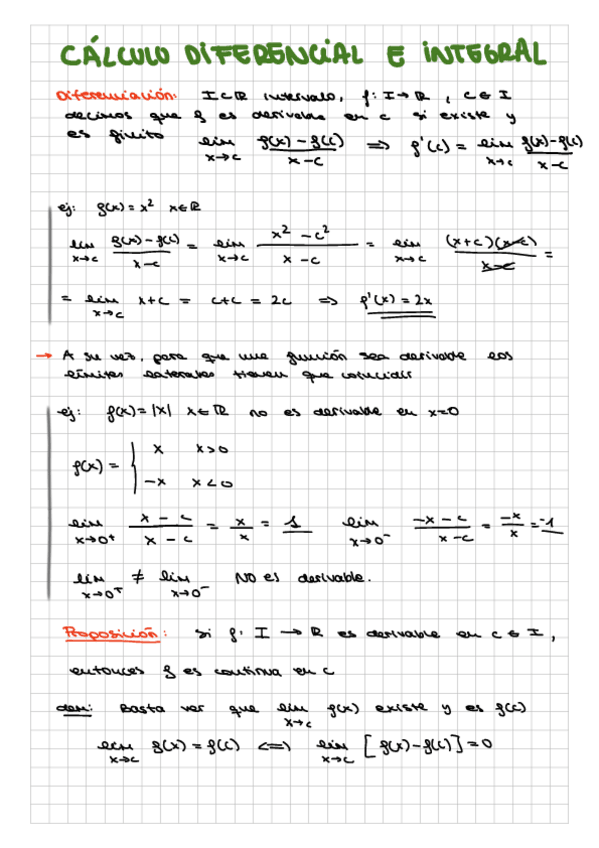 CÁLCULO DIFERENCIAL E INTEGRAL
Diferenciación: I⊂ℝ intervalo, f: I→ℝ, c∈I
decimos que f es derivable en c si existe y
es finito lim x→c (f(x)-f(c))/(x-c) ⟹ f'(c) = lim x→c (f(x)-f(c))/(x-c)
ej: f(x)=x² x∈ℝ
lim x→c (f(x)-f(c))/(x-c) = lim x→c (x²-c²)/(x-c) = lim x→c ((x+c)(x-c))/(x-c) =
= lim x→c x+c = c+c = 2c ⟹ f'(x)=2x
→ A su vez, para que una función sea derivable los
límites laterales tienen que coincidir
ej: f(x)=|x| x∈ℝ no es derivable en x=0
f(x) = { x x>0
-x x<0
lim x→0⁺ (x-c)/(x-c) = x/x = 1 lim x→0⁻ (-x-c)/(x-c) = -x/x = -1
lim x→0⁺ ≠ lim x→0⁻ NO es derivable.
Proposición: si f: I → ℝ es derivable en c∈I,
entonces f es continua en c
dem: Basta ver que lim x→c f(x) existe y es f(c)
lim x→c f(x) = f(c) ⟺ lim x→c [f(x)-f(c)] = 0